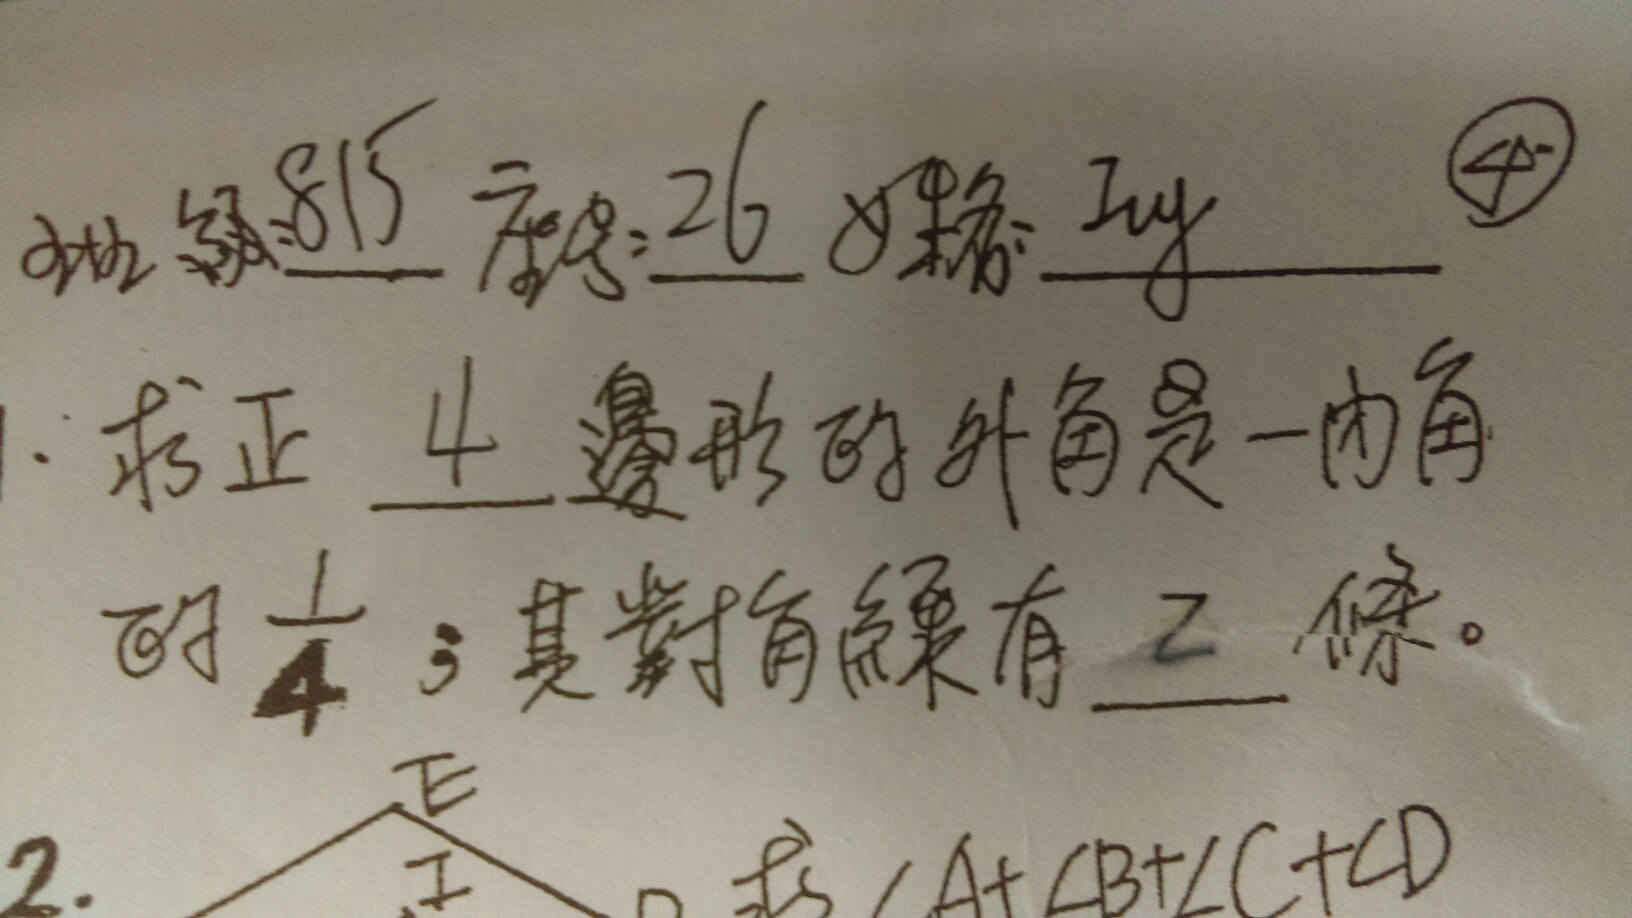 班級:815 座號:26 姓名: Ivy ④
1. 求正 4 邊形的外角是一內角
的 1/4 ; 其對角線有 2 條。
E
2. I D 求∠A+∠B+∠C+∠D